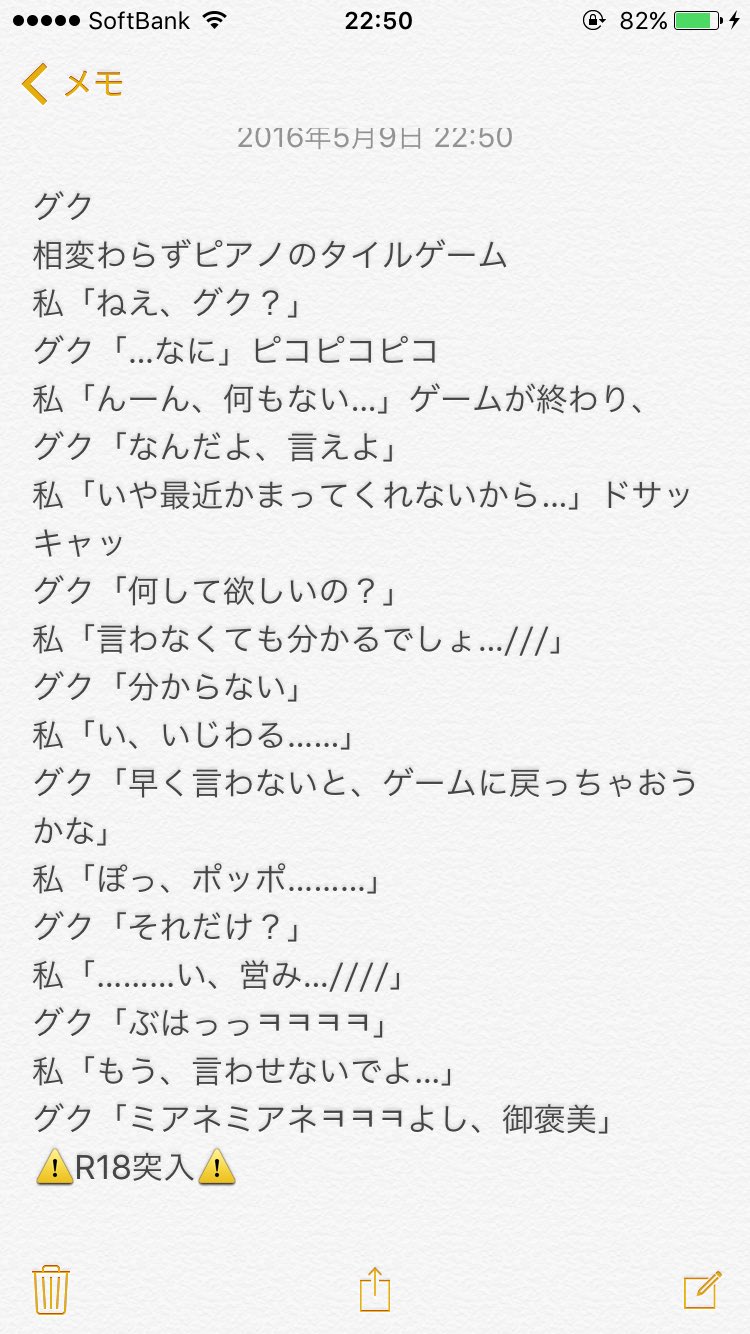 SoftBank 22:50 82%
メモ
2016年5月9日 22:50
グク
相変わらずピアノのタイルゲーム
私「ねえ、グク？」
グク「…なに」ピコピコピコ
私「んーん、何もない…」ゲームが終わり、
グク「なんだよ、言えよ」
私「いや最近かまってくれないから…」ドサッ
キャッ
グク「何して欲しいの？」
私「言わなくても分かるでしょ…///」
グク「分からない」
私「い、いじわる……」
グク「早く言わないと、ゲームに戻っちゃおう
かな」
私「ぽっ、ポッポ………」
グク「それだけ？」
私「………い、営み…////」
グク「ぶはっっㅋㅋㅋㅋ」
私「もう、言わせないでよ…」
グク「ミアネミアネㅋㅋㅋよし、御褒美」
⚠️R18突入⚠️